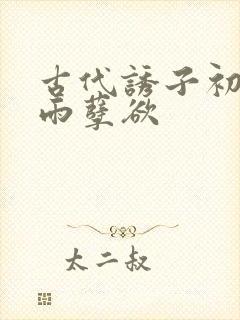 古代誘子初
雨孽欲
太二叔